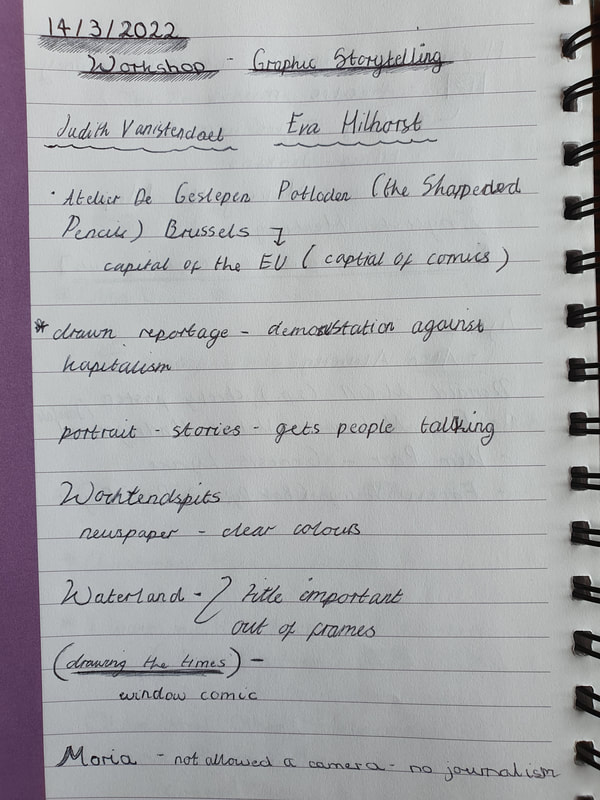 14/3/2022
Workshop - Graphic Storytelling
Judith Vanistendael Eva Hilhorst
· Atelier De Geslepen Potloden (the Sharpeded
Pencils) Brussels ↴
capital of the EU (captial of comics)
* drawn reportage - demonstation against
kapitalism
portrait - stories - gets people talking
Wochtendspits
newspaper - clear colours
Waterland - title important
out of frames
(drawing the times) -
window comic
Moria - not allowed a camera - no journalism